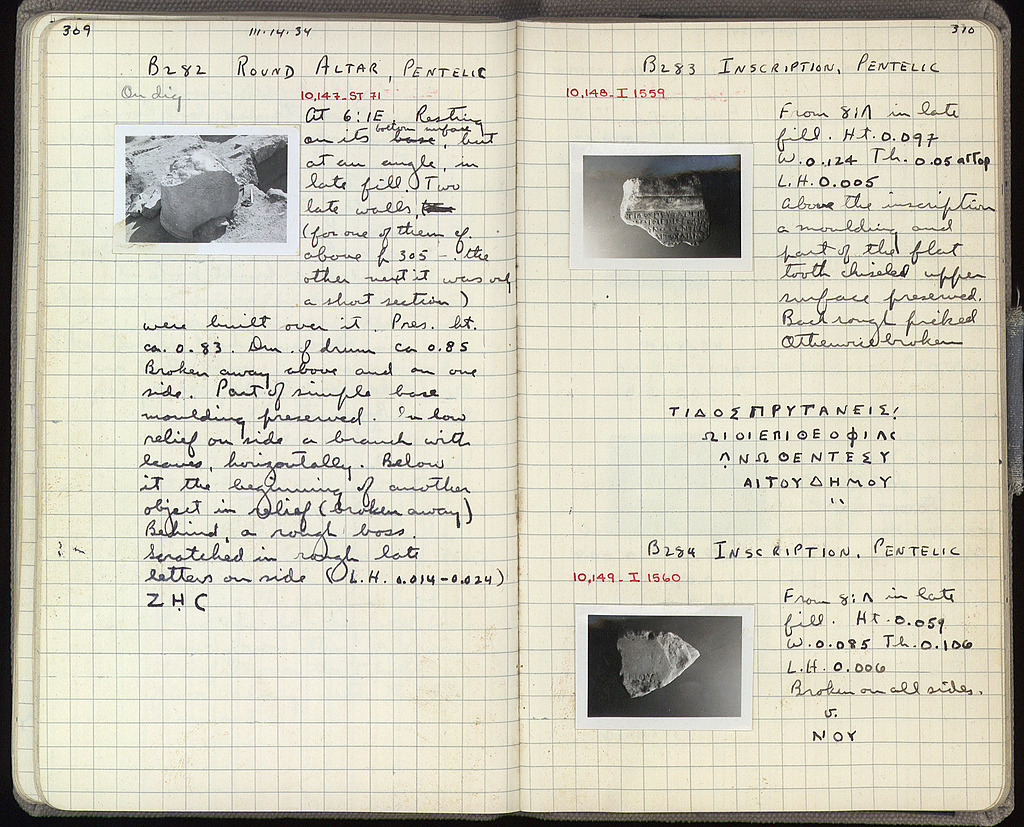 309
III.14.34
B282 ROUND ALTAR, PENTELIC
On dig
10,147-ST 71
At 6:1E Resting
bottom surface
on its base, but
at an angle, in
late fill. Two
late walls,
(for one of them cf.
above p 305 - the
other next it was only
a short section)
were built over it. Pres. ht.
ca. 0.83. Dm. of drum ca 0.85
Broken away above and on one
side. Part of simple base
moulding preserved. In low
relief on side a branch with
leaves, horizontally. Below
it the beginning of another
object in relief (broken away)
Behind, a rough boss.
Scratched in rough late
letters on side (L.H. 0.014-0.024)
ZHC
310
B283 INSCRIPTION, PENTELIC
10,148-I 1559
From 8:Λ in late
fill. Ht. 0.097
W. 0.124 Th. 0.05 at top
L.H. 0.005
Above the inscription
a moulding and
part of the flat
tooth chiseled upper
surface preserved.
Back rough picked
Otherwise broken
ΤΙΔΟΣΠΡΥΤΑΝΕΙΣ
ΩΙΟΙΕΠΙΘΕΟΦΙΛΣ
ΛΝΩΘΕΝΤΕΣΥ
ΑΙΤΟΥΔΗΜΟΥ
B284 INSCRIPTION, PENTELIC
10,149-I 1560
From 8:Λ in late
fill. Ht. 0.059
W. 0.085 Th. 0.106
L.H. 0.006
Broken on all sides.
ΝΙΟΥ